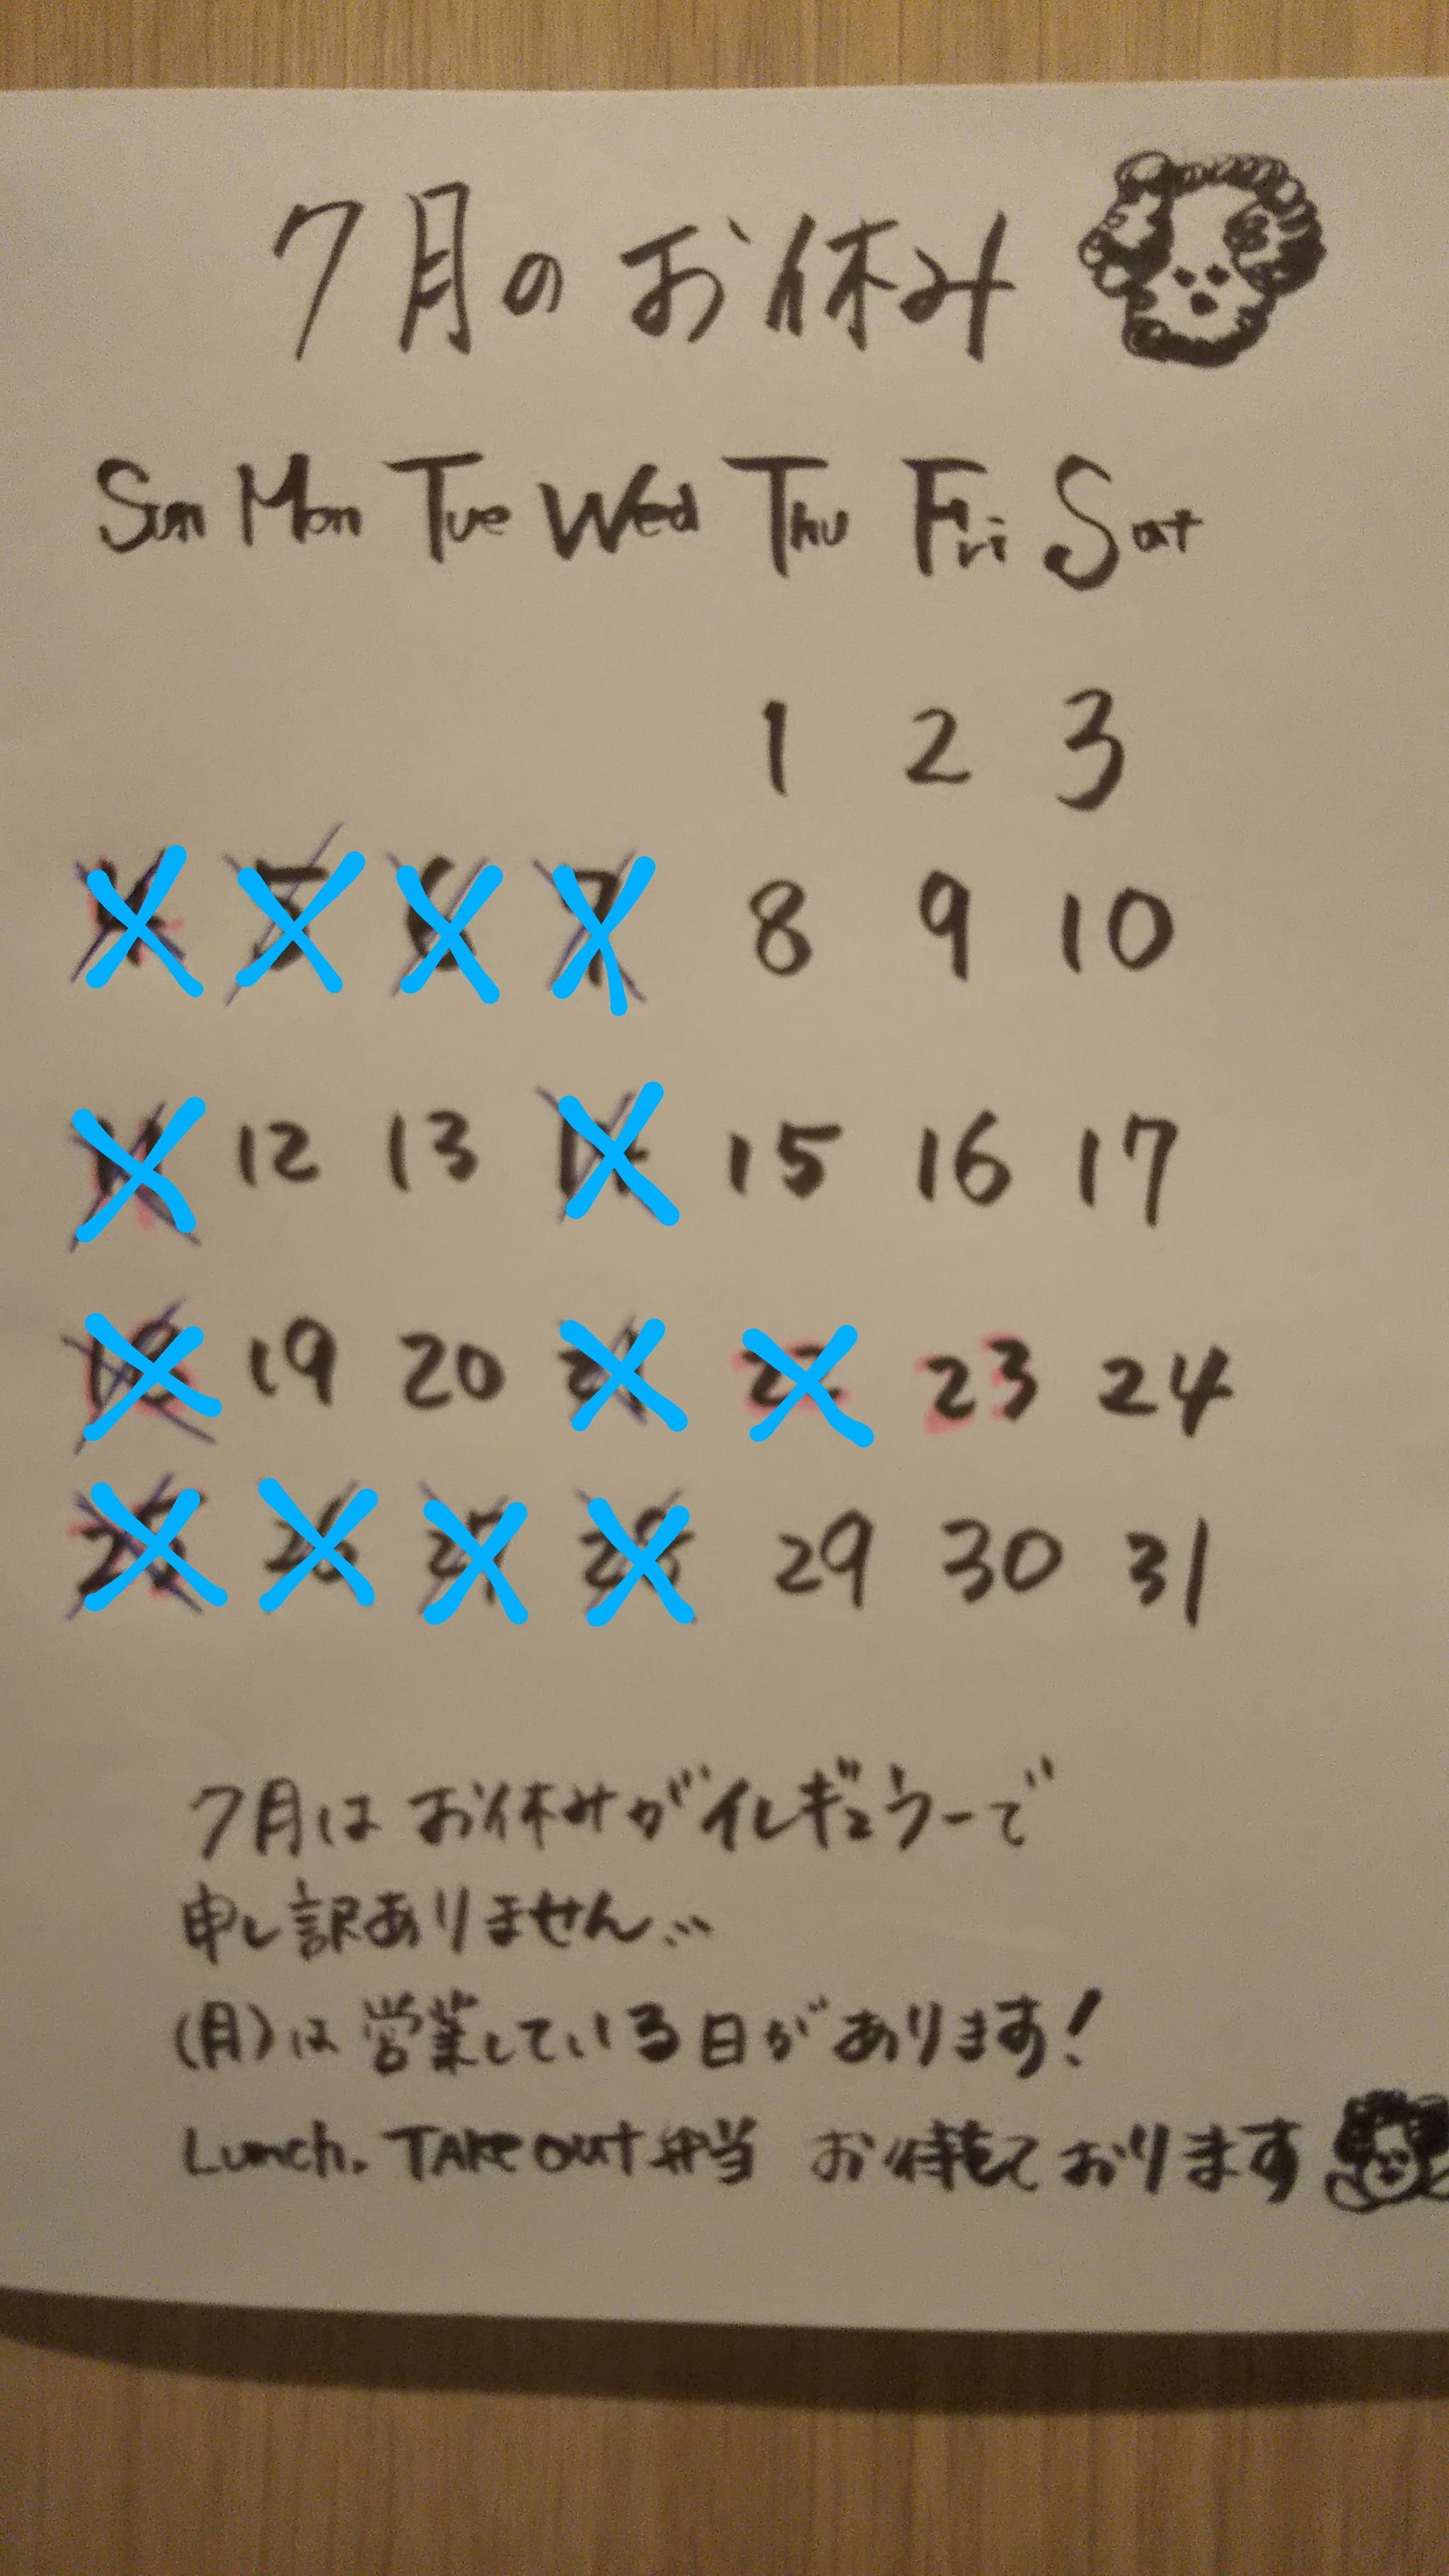 7月のお休み
Sun Mon Tue Wed Thu Fri Sat
1 2 3
4 5 6 7 8 9 10
11 12 13 14 15 16 17
18 19 20 21 22 23 24
25 26 27 28 29 30 31
7月はお休みがイレギュラーで
申し訳ありません...
(月)は営業している日があります!
Lunch. TAKe out弁当 お待ちしております